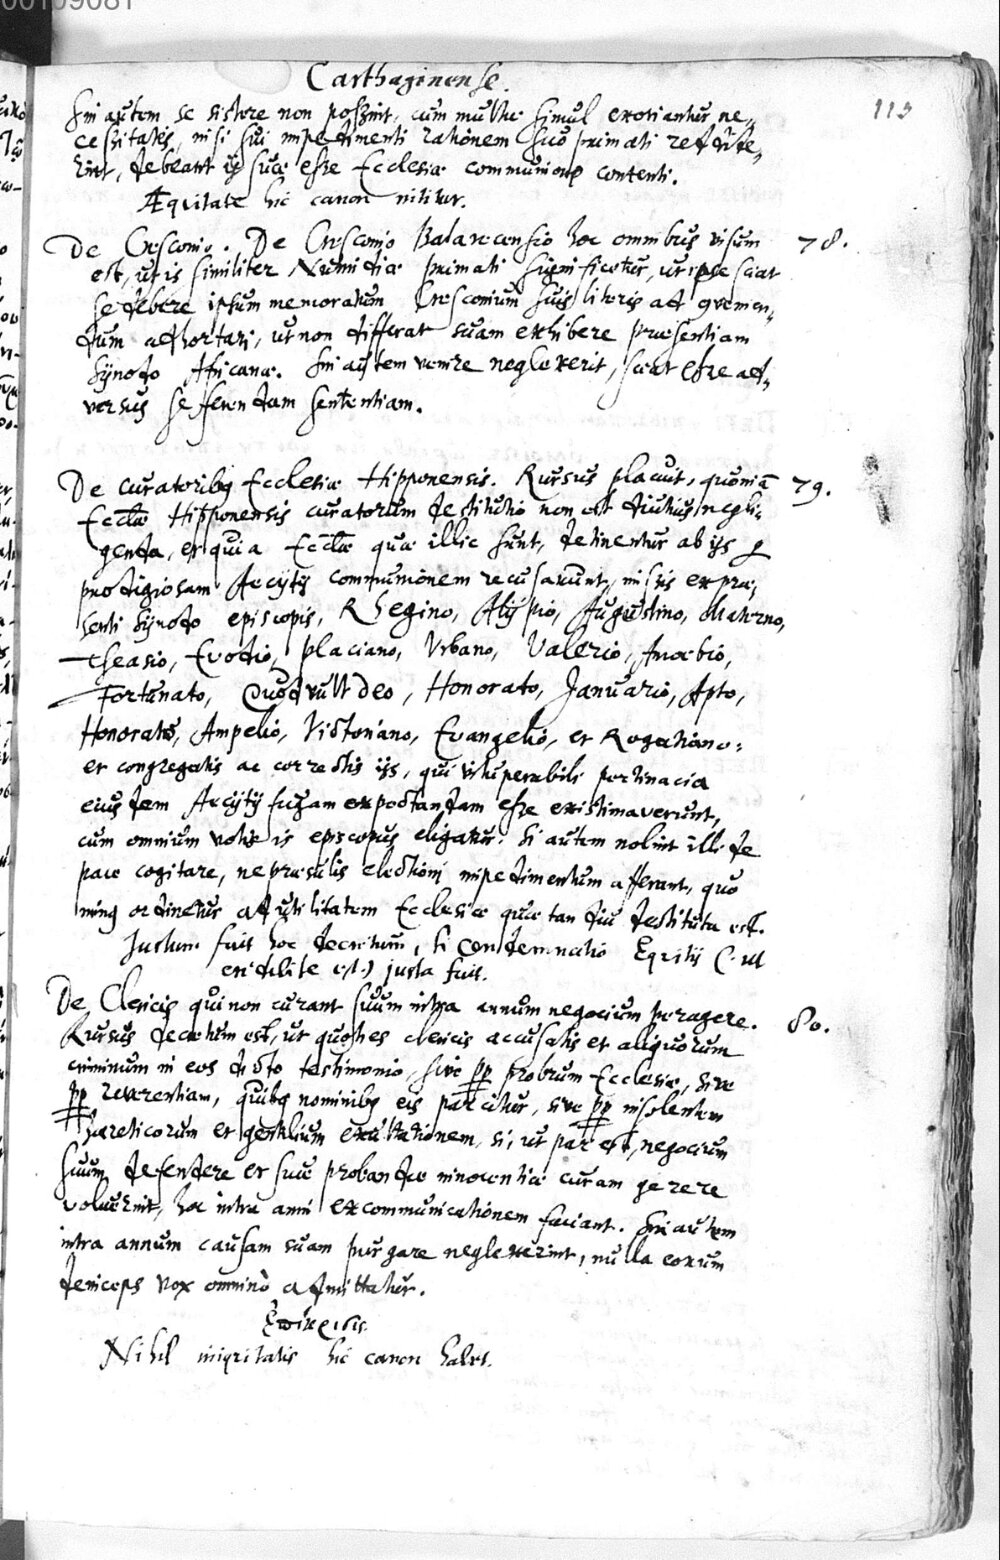 00109081
Carthaginense.
113
Sin autem se sistere non possint, cum multae simul exoriantur ne„
cessitates, nisi sui impedimenti rationem suo primati reddide„
rint, debeant ij suae esse Ecclesiae communione contenti.
Æquitate hic canon nititur.
De Cresconio. De Cresconio Balarecensio hoc omnibus visum 78.
est, ut is similiter Numidiae primati significetur, ut ipse sciat
se debere ipsum memoratum Cresconium suis literis ad
dum adhortari, ut non differat suam exhibere praesentiam
Synodo Africanae. Sin autem venire neglexerit, sciat esse ad„
versus se fferendam sententiam.
De curatoribq Ecclesiae Hipponensis. Rursus placuit, quoniā 79.
Eccliae Hipponensis curatorum destitutio non est diutius negli„
genda, et quia Eccliae quae illic sunt, detinentur ab ijs
prodigiosam Aecytij communionem recusarunt, missis ex prae„
senti synodo episcopis, Rhegino, Alypio, Augustino, Materno,
Theasio, Evodio, Placiano, Urbano, Valerio, Amobio,
Fortunato, Quodvult deo, Honorato, Januario, Apto,
Honorato, Ampelio, Victoriano, Evangelio, et Rogatiano:
et congregatis ac correctis ijs, qui vituperabili pertinacia
eiusdem Aecytij fugam expectandam esse existimaverunt,
cum omnium votis is episcopus eligatur. Si autem nolint illi de
pace cogitare, ne praesulis electioni impedimentum afferant, quo
minq ordinetur ad utilitatem Ecclesiae quae tan diu destituta est.
Justum fuit hoc decretum, si condemnatio Equitij C. ut
credibile est) justa fuit.
De Clericis qui non curant suum intra annum negocium peragere. 80.
Rursus decretum est, ut quoties clericis accusatis et aliquorum
criminum in eos dicto testimonio, sive pp probrum Ecclesiae, sive
pp reverentiam, quibq nominibq eis parcitur, sive pp insolentem
haereticorum et gentilium exultationem, si, ut par est, negocium
suum defendere et suae probandae innocentiae curam gerere
voluerint, hoc intra anni excommunicationem faciant. Sin autem
intra annum causam suam purgare neglexerint, nulla eorum
deinceps vox omninò admittatur.
Nihil iniquitatis hic canon habet.